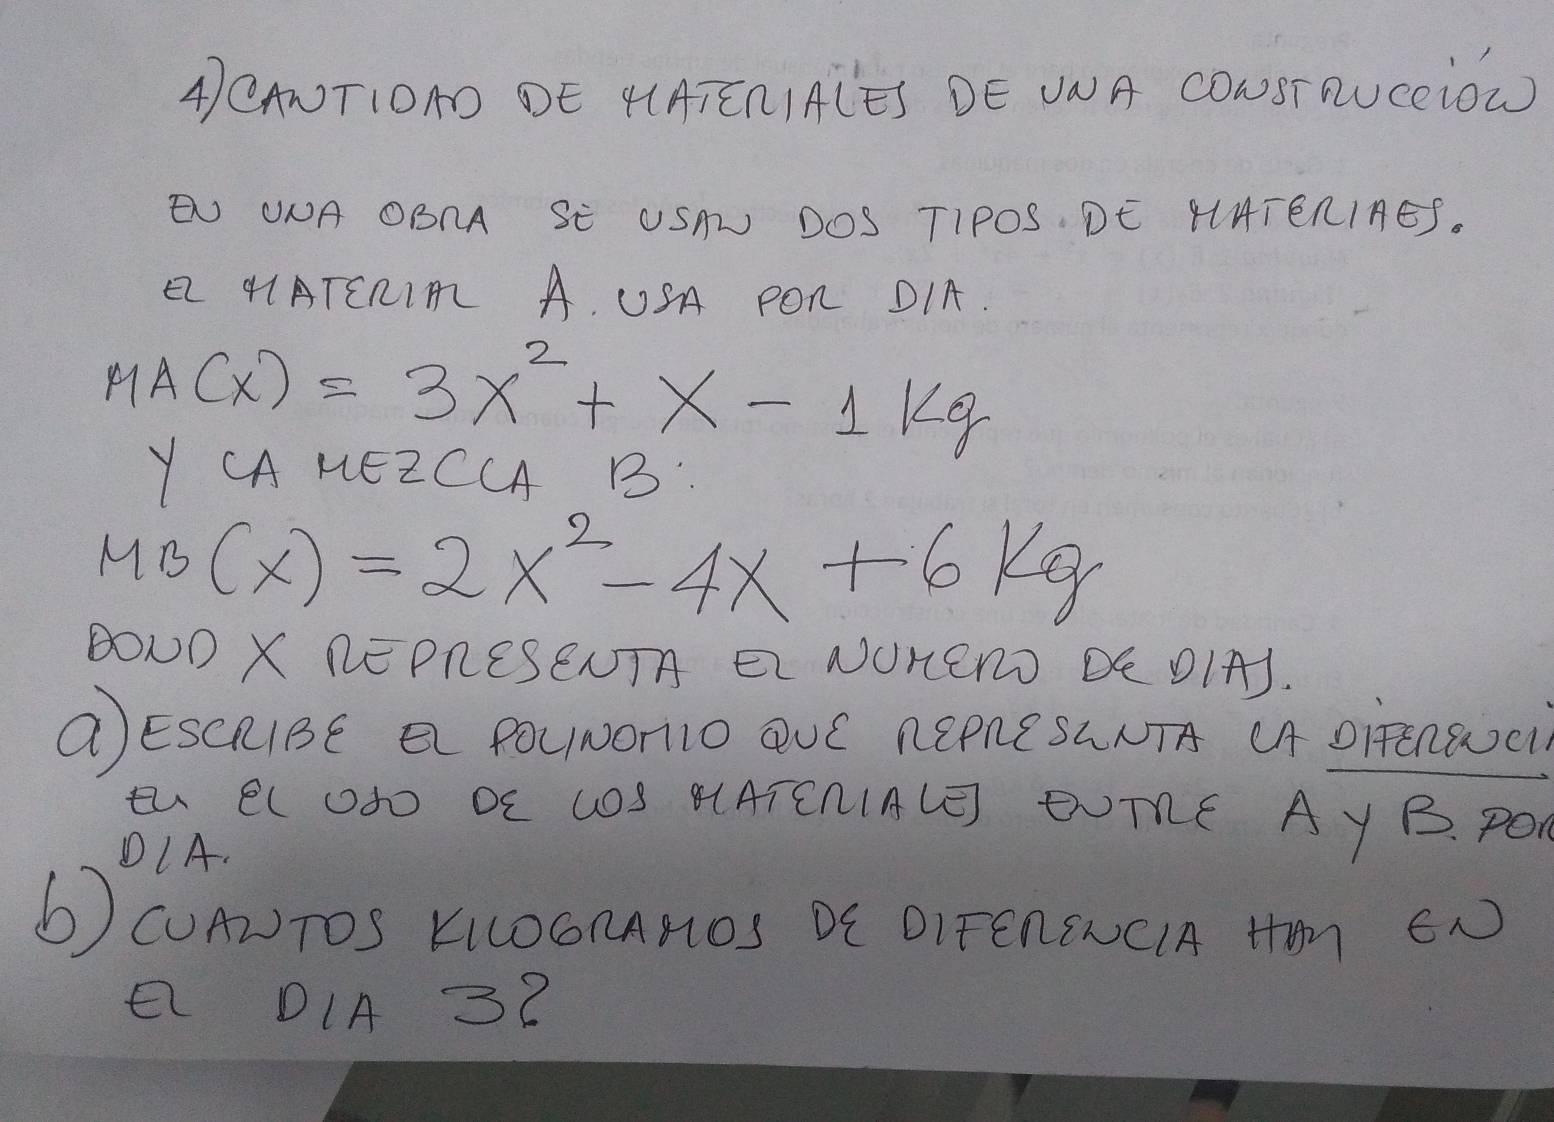 4) CANTIDAD DE MATERIALES DE UNA CONSTRUCCIÓN
EN UNA OBRA SE USAN DOS TIPOS. DE MATERIAES.
EL MATERIAL A. USA POR DIA.
MA(X) = 3X² + X - 1 Kg
Y LA MEZCLA B:
MB(X) = 2X² - 4X + 6 Kg
DOND X REPRESENTA EL NUMERO DE DIAS.
a) ESCRIBE EL POLINOMIO QUE REPRESENTA LA DIFERENCIA
EN EL USO DE LOS MATERIALES ENTRE A Y B. POR
DIA.
b) CUANTOS KILOGRAMOS DE DIFERENCIA HAY EN
EL DIA 3?